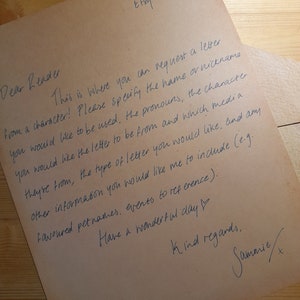 Etsy
Dear Reader
This is where you can request a letter
from a character! Please specify the name or nickname
you would like to be used, the pronouns, the character
you would like the letter to be from and which media
they're from, the type of letter you would like, and any
other information you would like me to include (e.g.
favoured petnames, events to reference).
Have a wonderful day ♡
Kind regards,
x